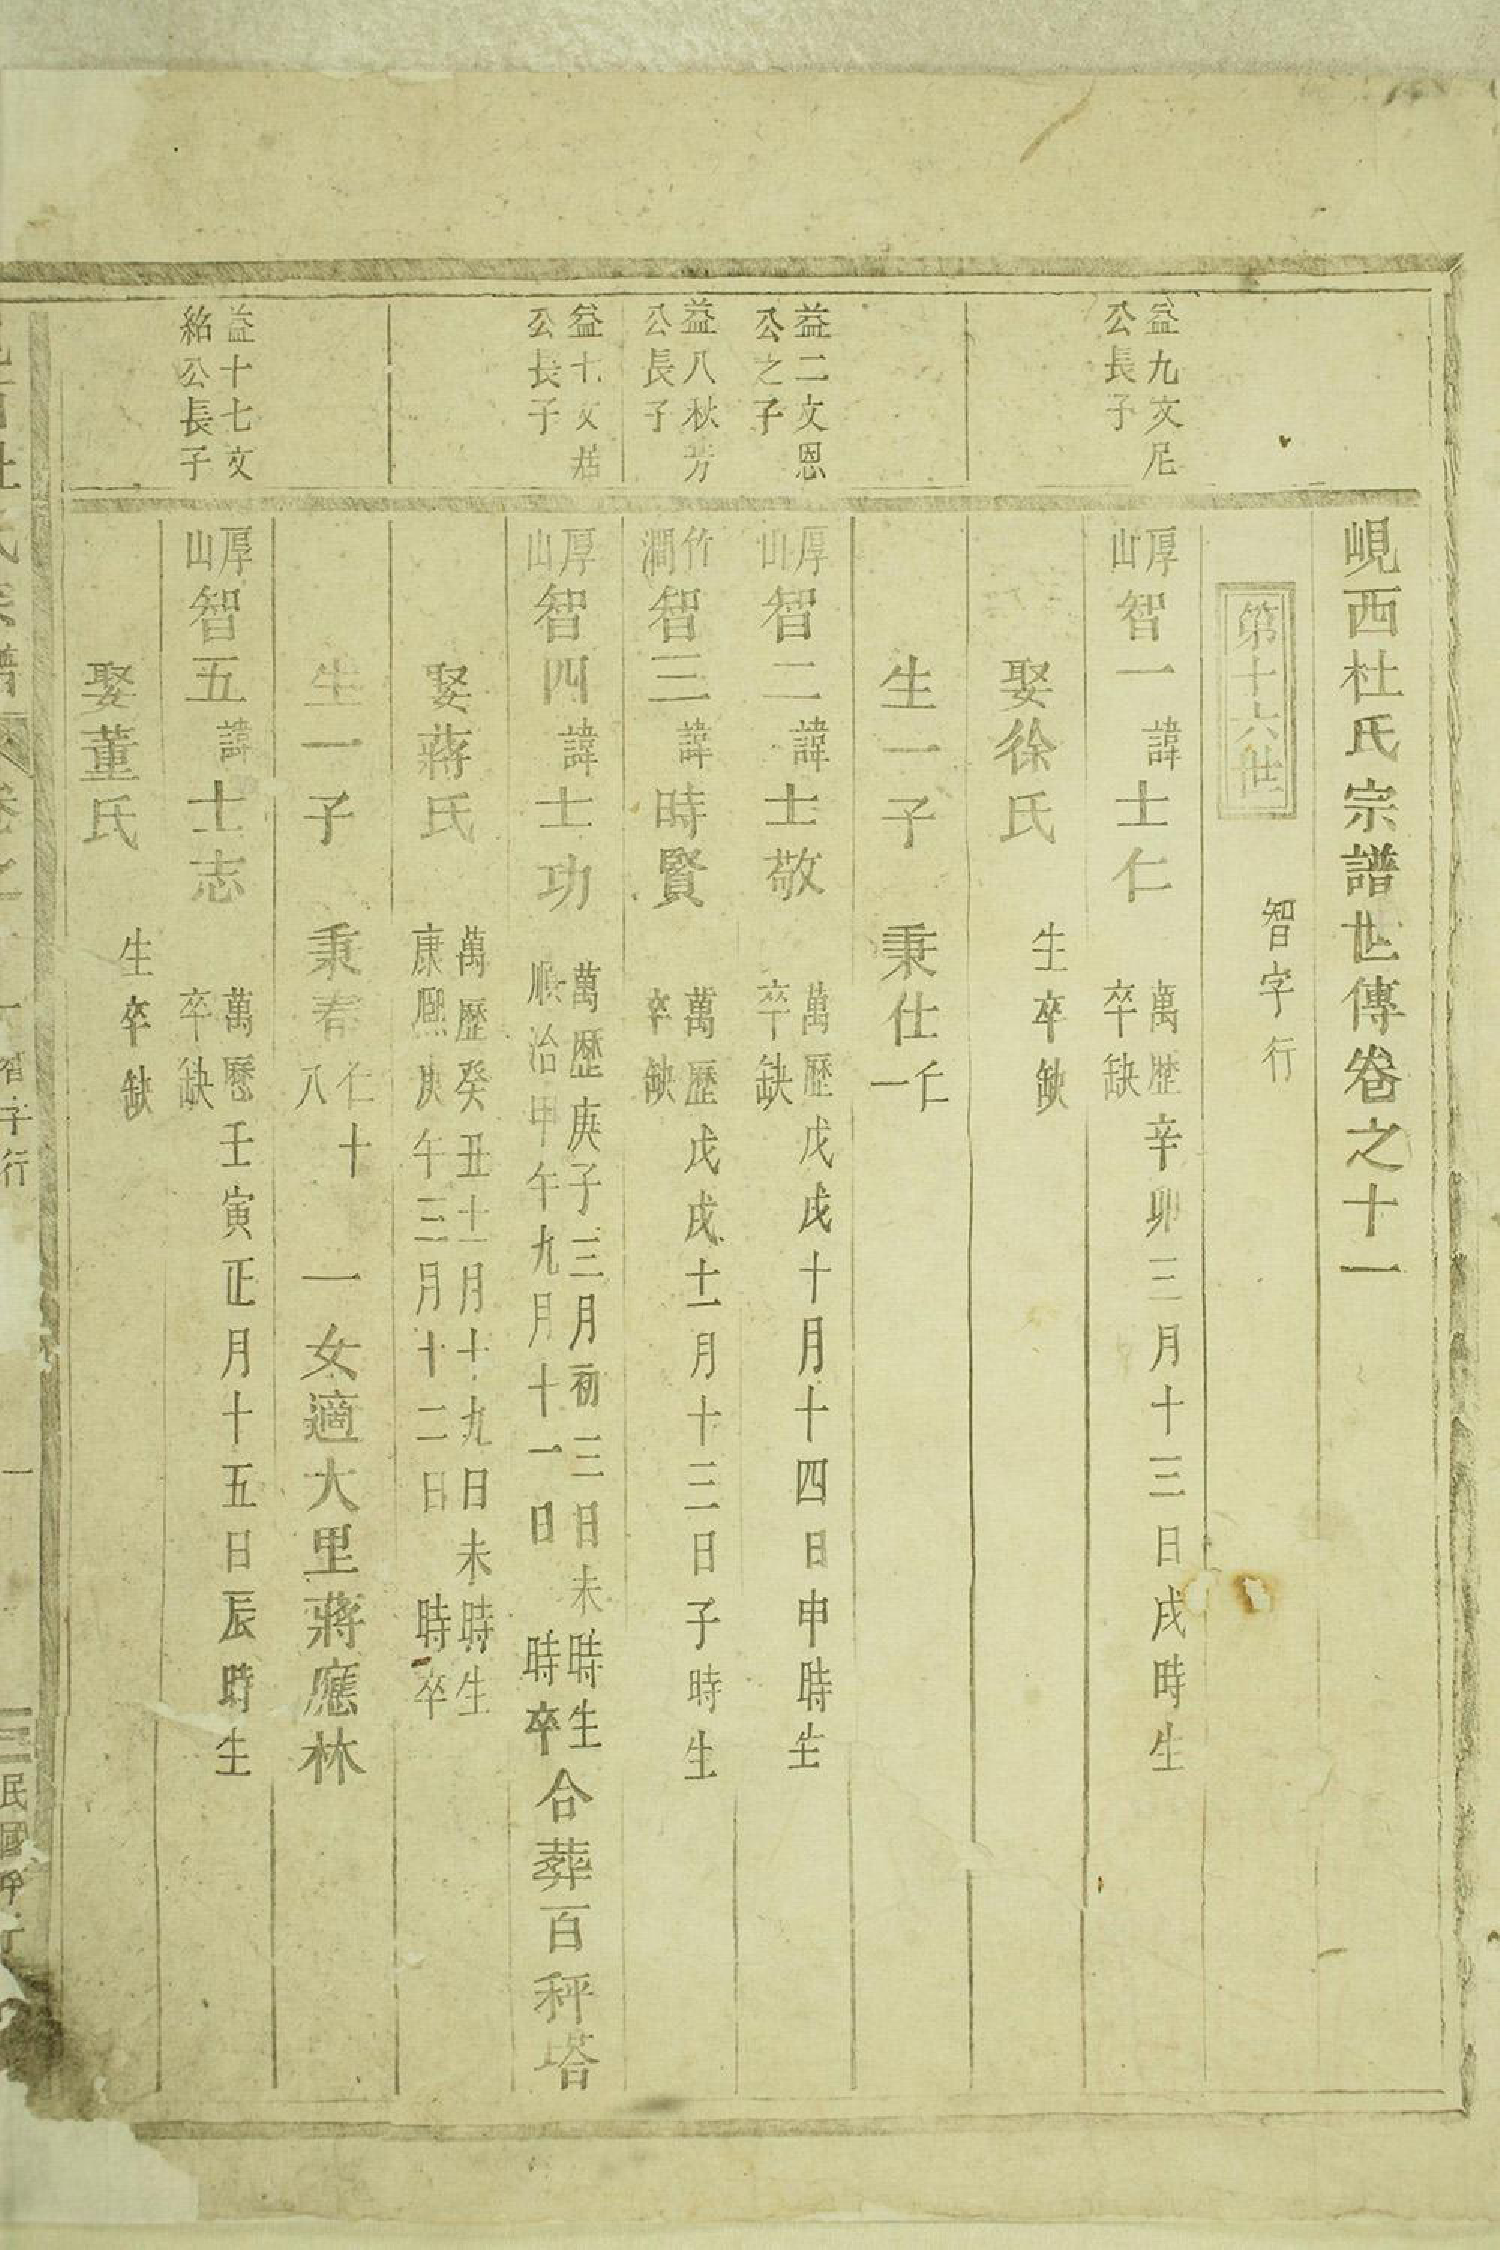 峴西杜氏宗譜世傳卷之十一
第十六世
智字行
益九文尼
公長子
厚山智一諱士仁
萬歷辛卯三月十三日戌時生
卒缺
娶徐氏
生卒缺
生一子 秉仕仁一
益二文恩
公之子
厚山智二諱士敬
萬歷戊戌十月十四日申時生
卒缺
益八秋芳
公長子
竹澗智三諱時賢
萬歷戊戌十一月十二日子時生
卒缺
益十文居
公長子
厚山智四諱士功
萬歷庚子三月初三日未時生
順治甲午九月十一日 時卒
合葬百秤塔
娶蔣氏
萬歷癸丑十一月十九日未時生
康熙庚午三月十二日 時卒
生一子 秉春仁十八 一女適大里蔣應林
益十七文
紹公長子
厚山智五諱士志
萬曆壬寅正月十五日辰時生
卒缺
娶董氏
生卒缺
杜氏宗譜 卷之十一 智字行 一 民國